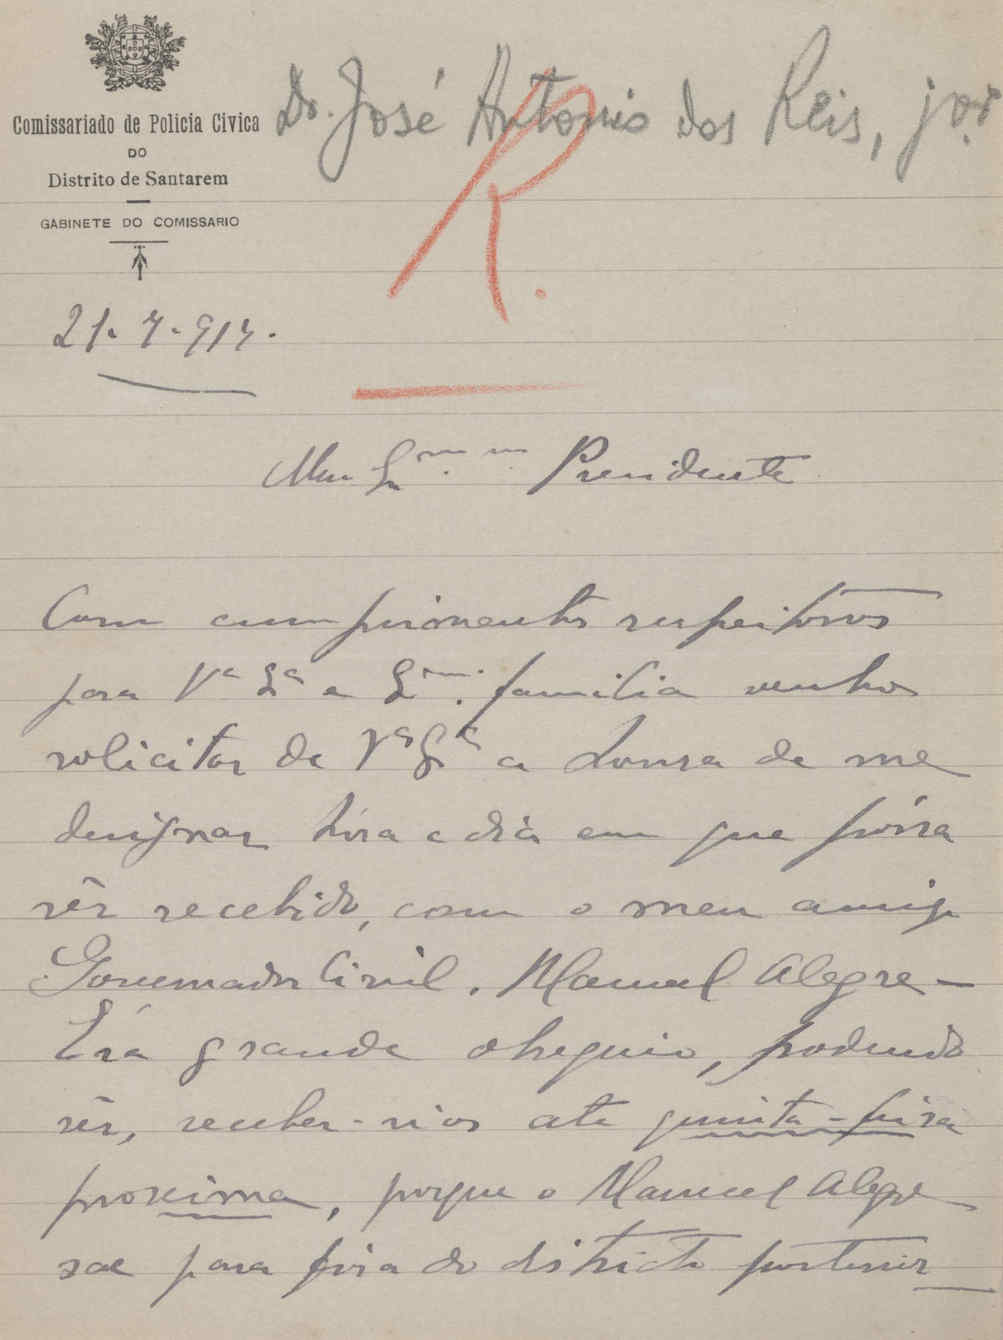 Comissariado de Policia Civica
DO
Distrito de Santarem
GABINETE DO COMISSARIO
Dr. José Antonio dos Reis, jor
R.
21-7-917.
Meu Exmo. Presidente
Com cumprimentos respeitosos
para Va Exa e Exma. familia venho
solicitar de Va Exa a honra de me
designar hora e dia em que póssa
sêr recebido, com o meu amigo
Governador Civil, Manuel Alegre –
Era grande obsequio, podendo
sêr, receber-nos até quinta-feira
proxima, porque o Manuel Alegre
sae para fóra do districto